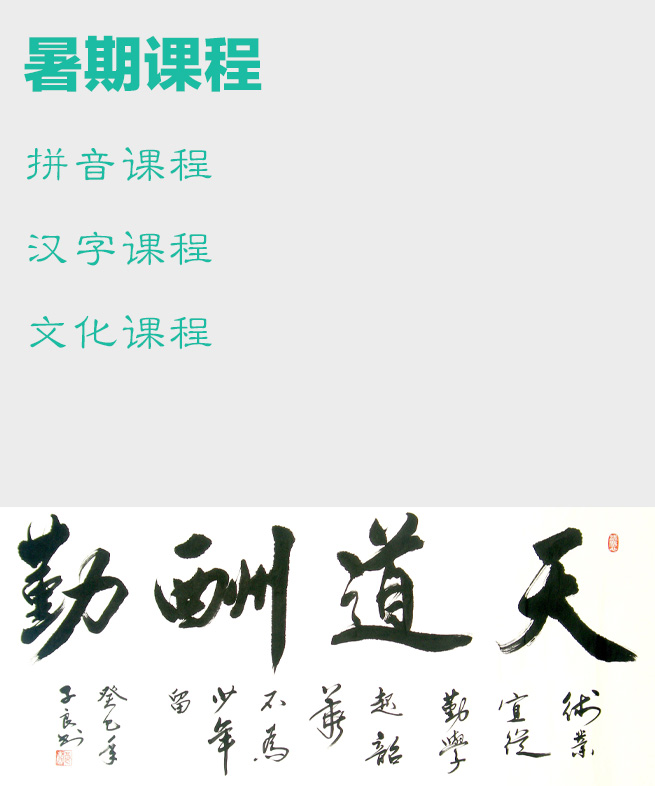 暑期课程
拼音课程
汉字课程
文化课程
天道酬勤
術業
宜從
勤學
起韶
華
不為
少年
留
癸巳年
子良书